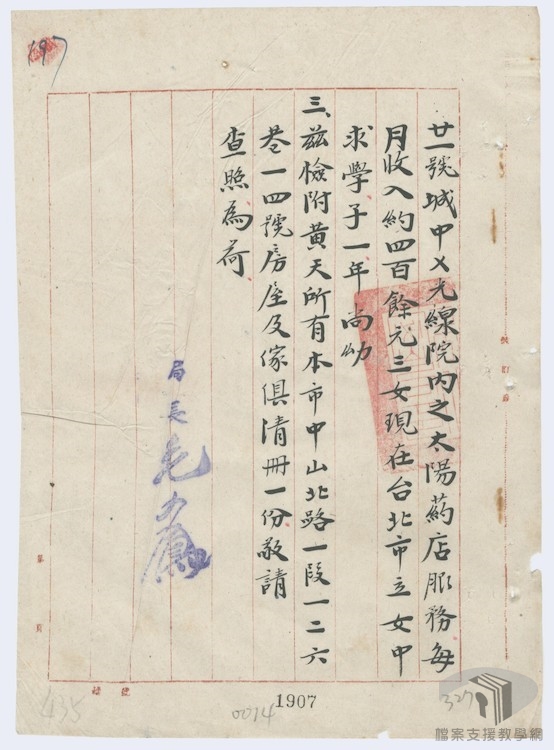 197
廿一號城中X光線院內之太陽葯店服務每
月收入約四百餘元三女現在台北市立女中
求學、子一年尚幼
三、茲檢附黃天所有本市中山北路一段一二六
巷一四號房屋及傢俱清冊一份敬請
查照為荷
局長毛
第 頁
435
0014
1907
327
檔案支援教學網